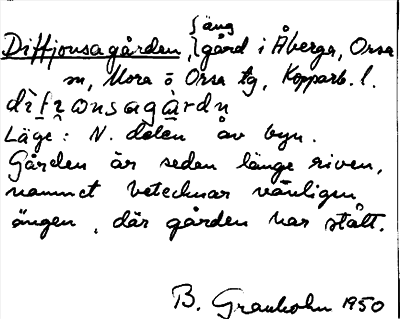 {äng
Diffjonsagården, {gård i Åberga, Orsa
sn, Mora o Orsa tg, Kopparb. l.
Läge: N. delen av byn.
Gården är sedan länge riven,
namnet betecknar vanligen
ängen, där gården har stått.
B. Granholm 1950